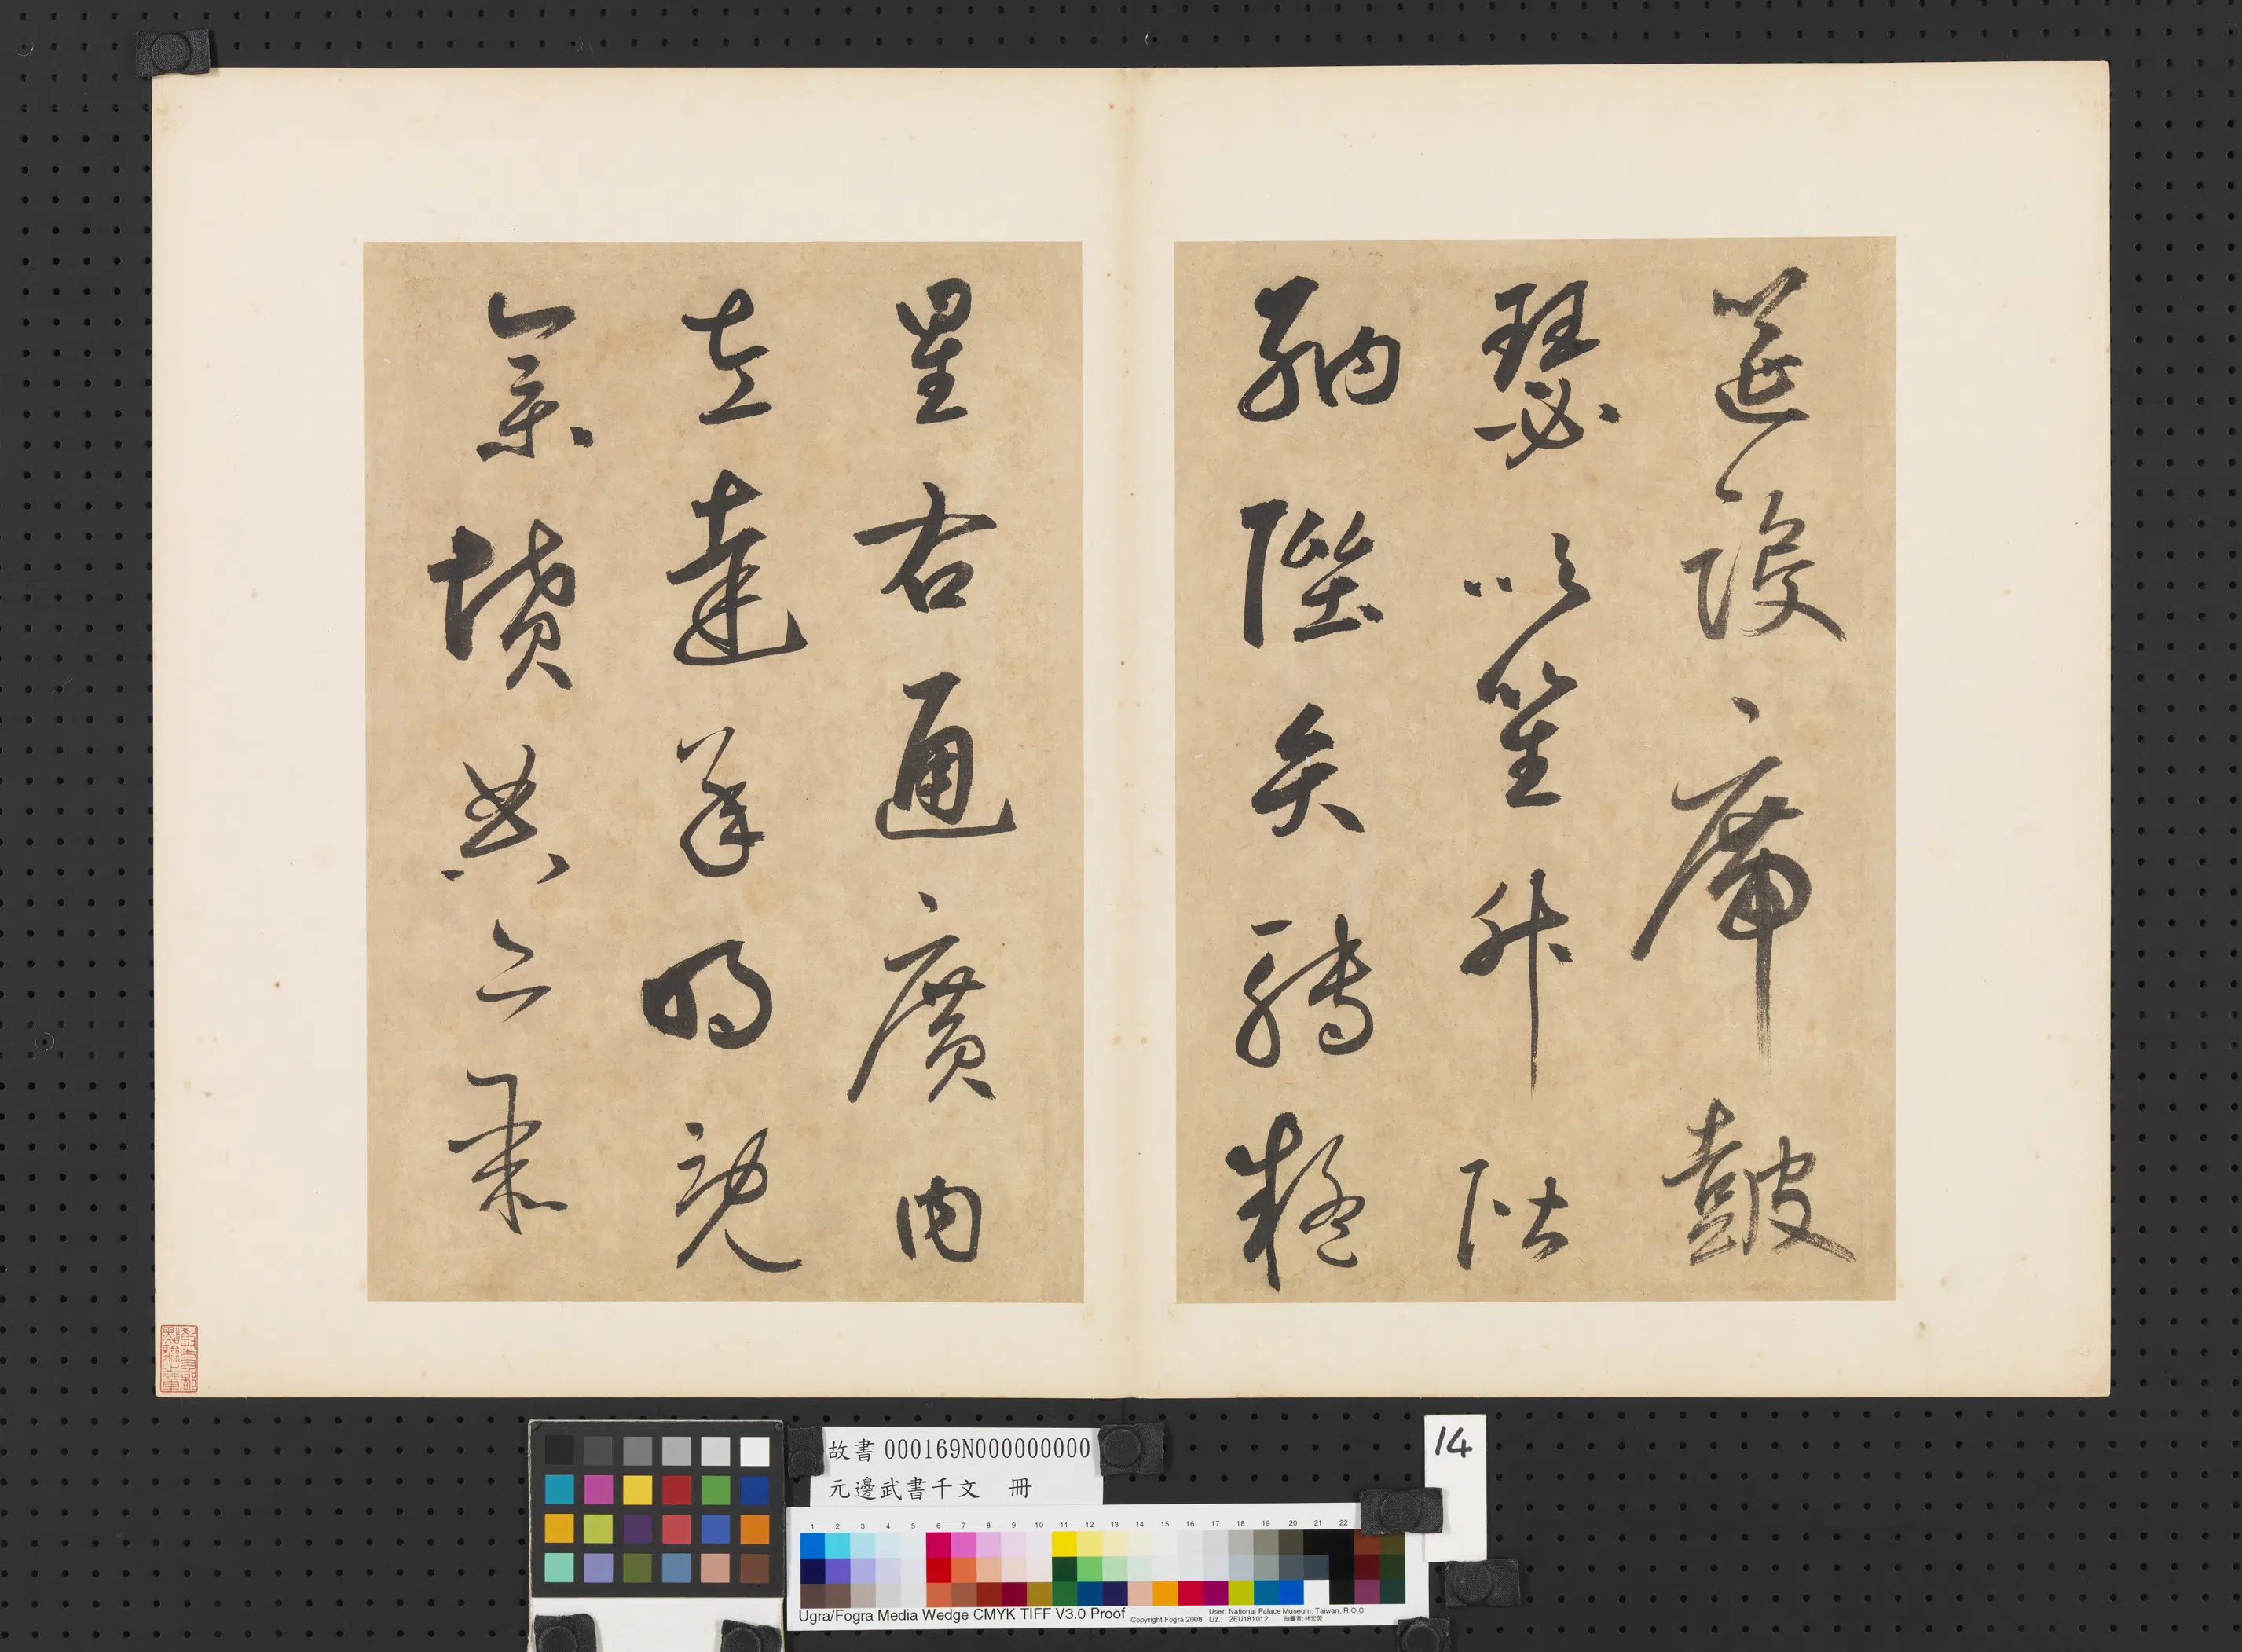 筵設席皷
瑟吹笙升階
納陛弁轉疑
星右通廣内
左達承明既
集墳典亦聚
故書 000169N000000000
元邊武書千文 冊
14
1 2 3 4 5 6 7 8 9 10 11 12 13 14 15 16 17 18 19 20 21 22
Ugra/Fogra Media Wedge CMYK TIFF V3.0 Proof
Copyright Fogra 2008
User: National Palace Museum, Taiwan, R.O.C
Liz.: 2EU181012